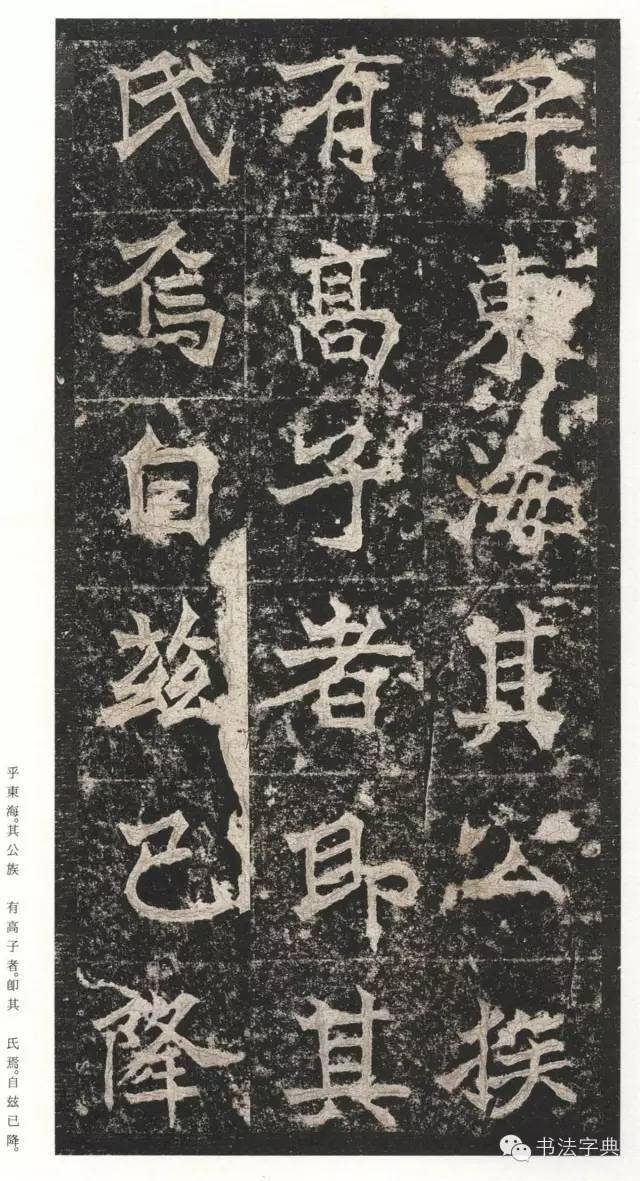 乎東海其公族
有高子者即其
氏焉自兹已降
乎東海。其公族　有高子者。卽其　氏焉。自兹已降。
书法字典